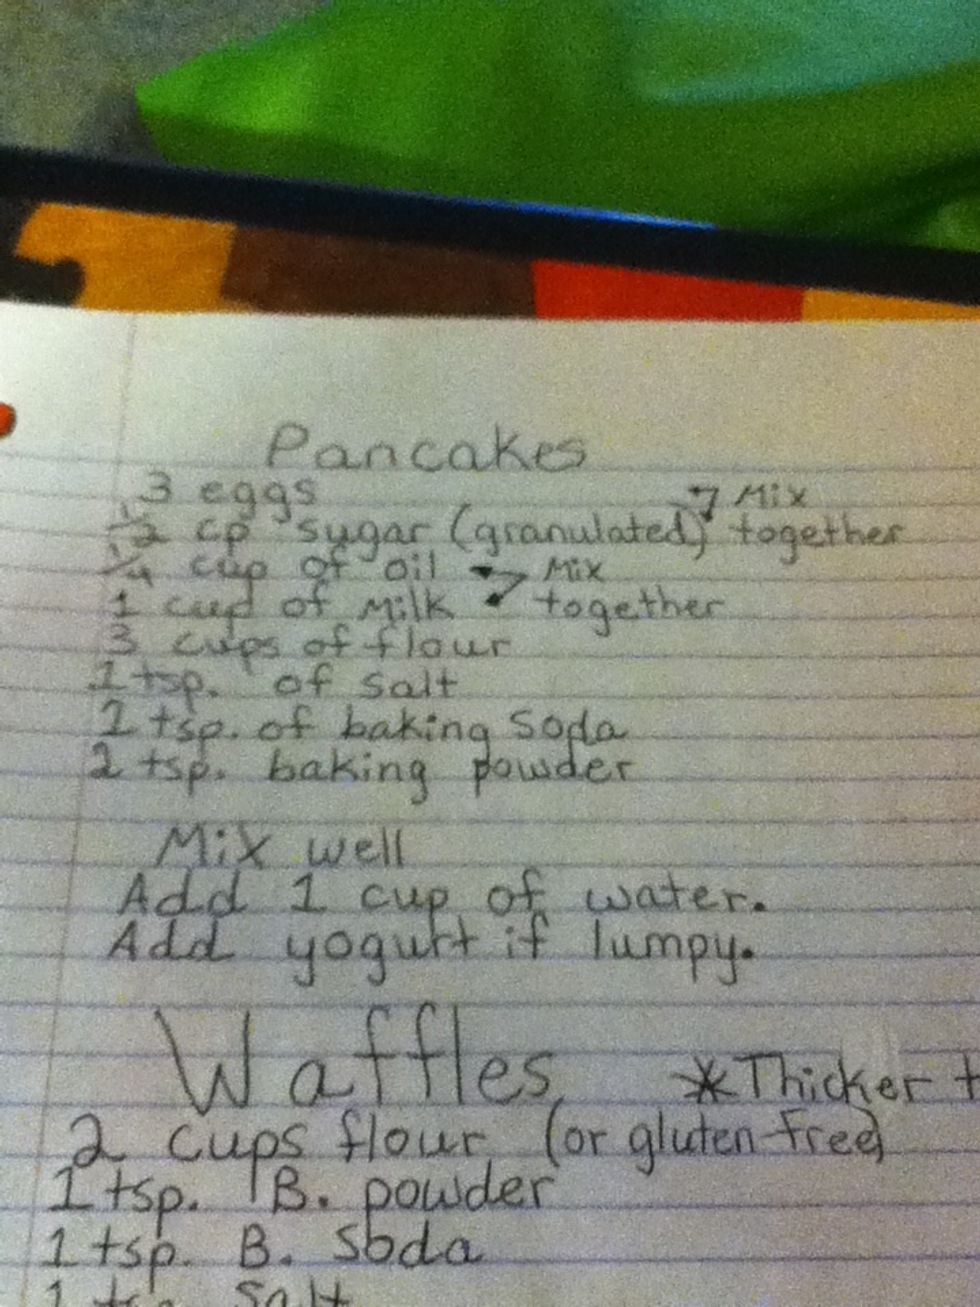 Pancakes
3 eggs
1/2 cp sugar (granulated) Mix together
1/4 cup of oil Mix
1 cup of Milk together
3 cups of flour
1 tsp. of salt
1 tsp. of baking soda
2 tsp. baking powder
Mix well
Add 1 cup of water.
Add yogurt if lumpy.
Waffles *Thicker
2 cups flour (or gluten-free)
1 tsp. B. powder
1 tsp. B. soda
1 salt